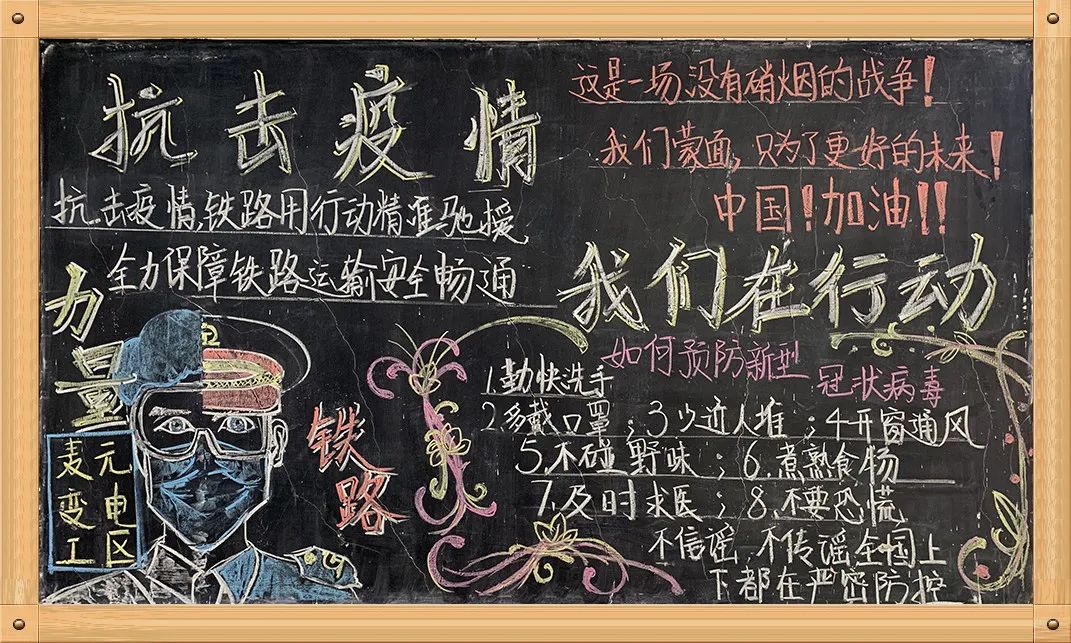 抗击疫情
抗击疫情,铁路用行动精准驰援
全力保障铁路运输安全畅通
力量
铁路
麦元
变电
工区
这是一场没有硝烟的战争!
我们蒙面,只为了更好的未来!
中国!加油!!
我们在行动
如何预防新型
冠状病毒
1.勤快洗手
2多戴口罩;3少近人堆;4开窗通风
5.不碰野味;6.煮熟食物
7.及时求医;8.不要恐慌
不信谣 不传谣全国上
下都在严密防控